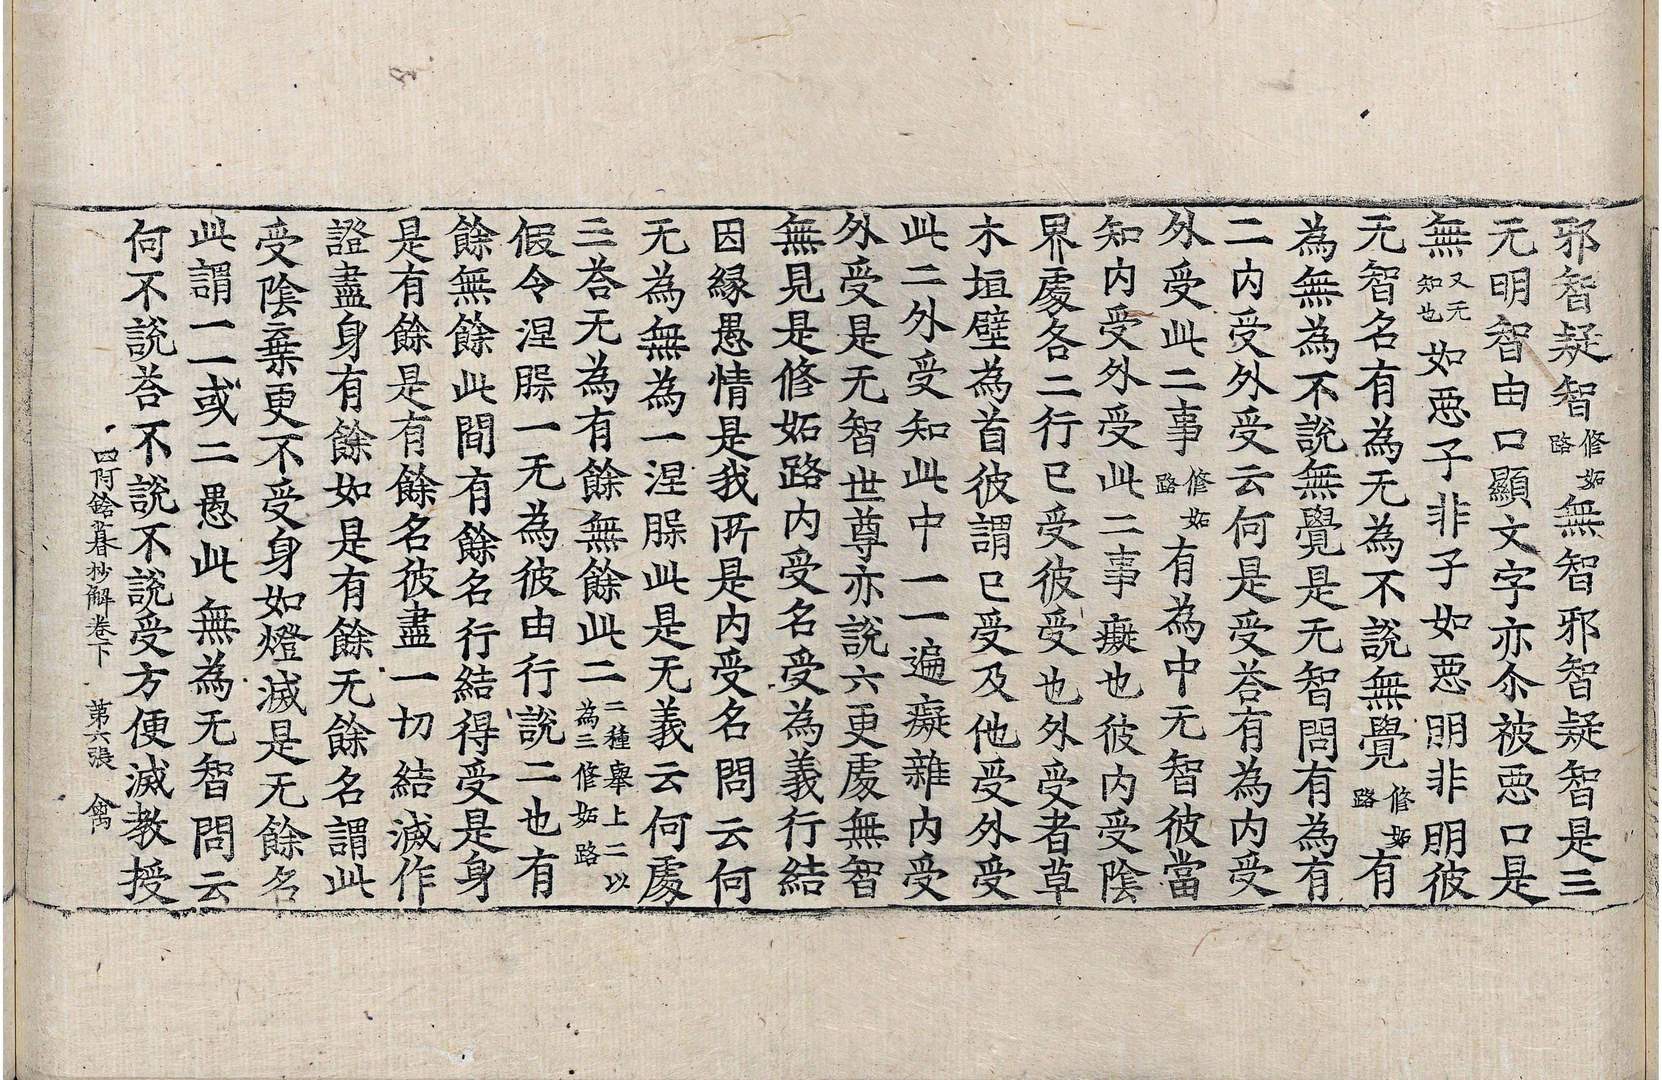 邪智疑智修妬路無智邪智疑智是三
无明智由口顯文字亦尒被惡口是
無又无知也如惡子非子如惡明非明彼
无智名有為无為不說無覺修妬路有
為無為不說無覺是无智問有為有
二內受外受云何是受荅有為內受
外受此二事修妬路有為中无智彼當
知內受外受此二事癡也彼內受陰
界處各二行已受彼受也外受者草
木垣壁為首彼謂已受及他受外受
此二外受知此中一一遍癡雜內受
外受是无智世尊亦說六更處無智
無見是修妬路內受名受為義行結
因緣愚情是我所是內受名問云何
无為無為一涅脲此是无義云何處
三荅无為有餘無餘此二二種舉上二以為三修妬路
假令涅脲一无為彼由行說二也有
餘無餘此間有餘名行結得受是身
是有餘是有餘名彼盡一切結滅作
證盡身有餘如是有餘无餘名謂此
受陰棄更不受身如燈滅是无餘名
此謂一一或二愚此無為无智問云
何不說荅不說不說受方便滅教授
四阿鋡暮抄解卷下　第六張　禽